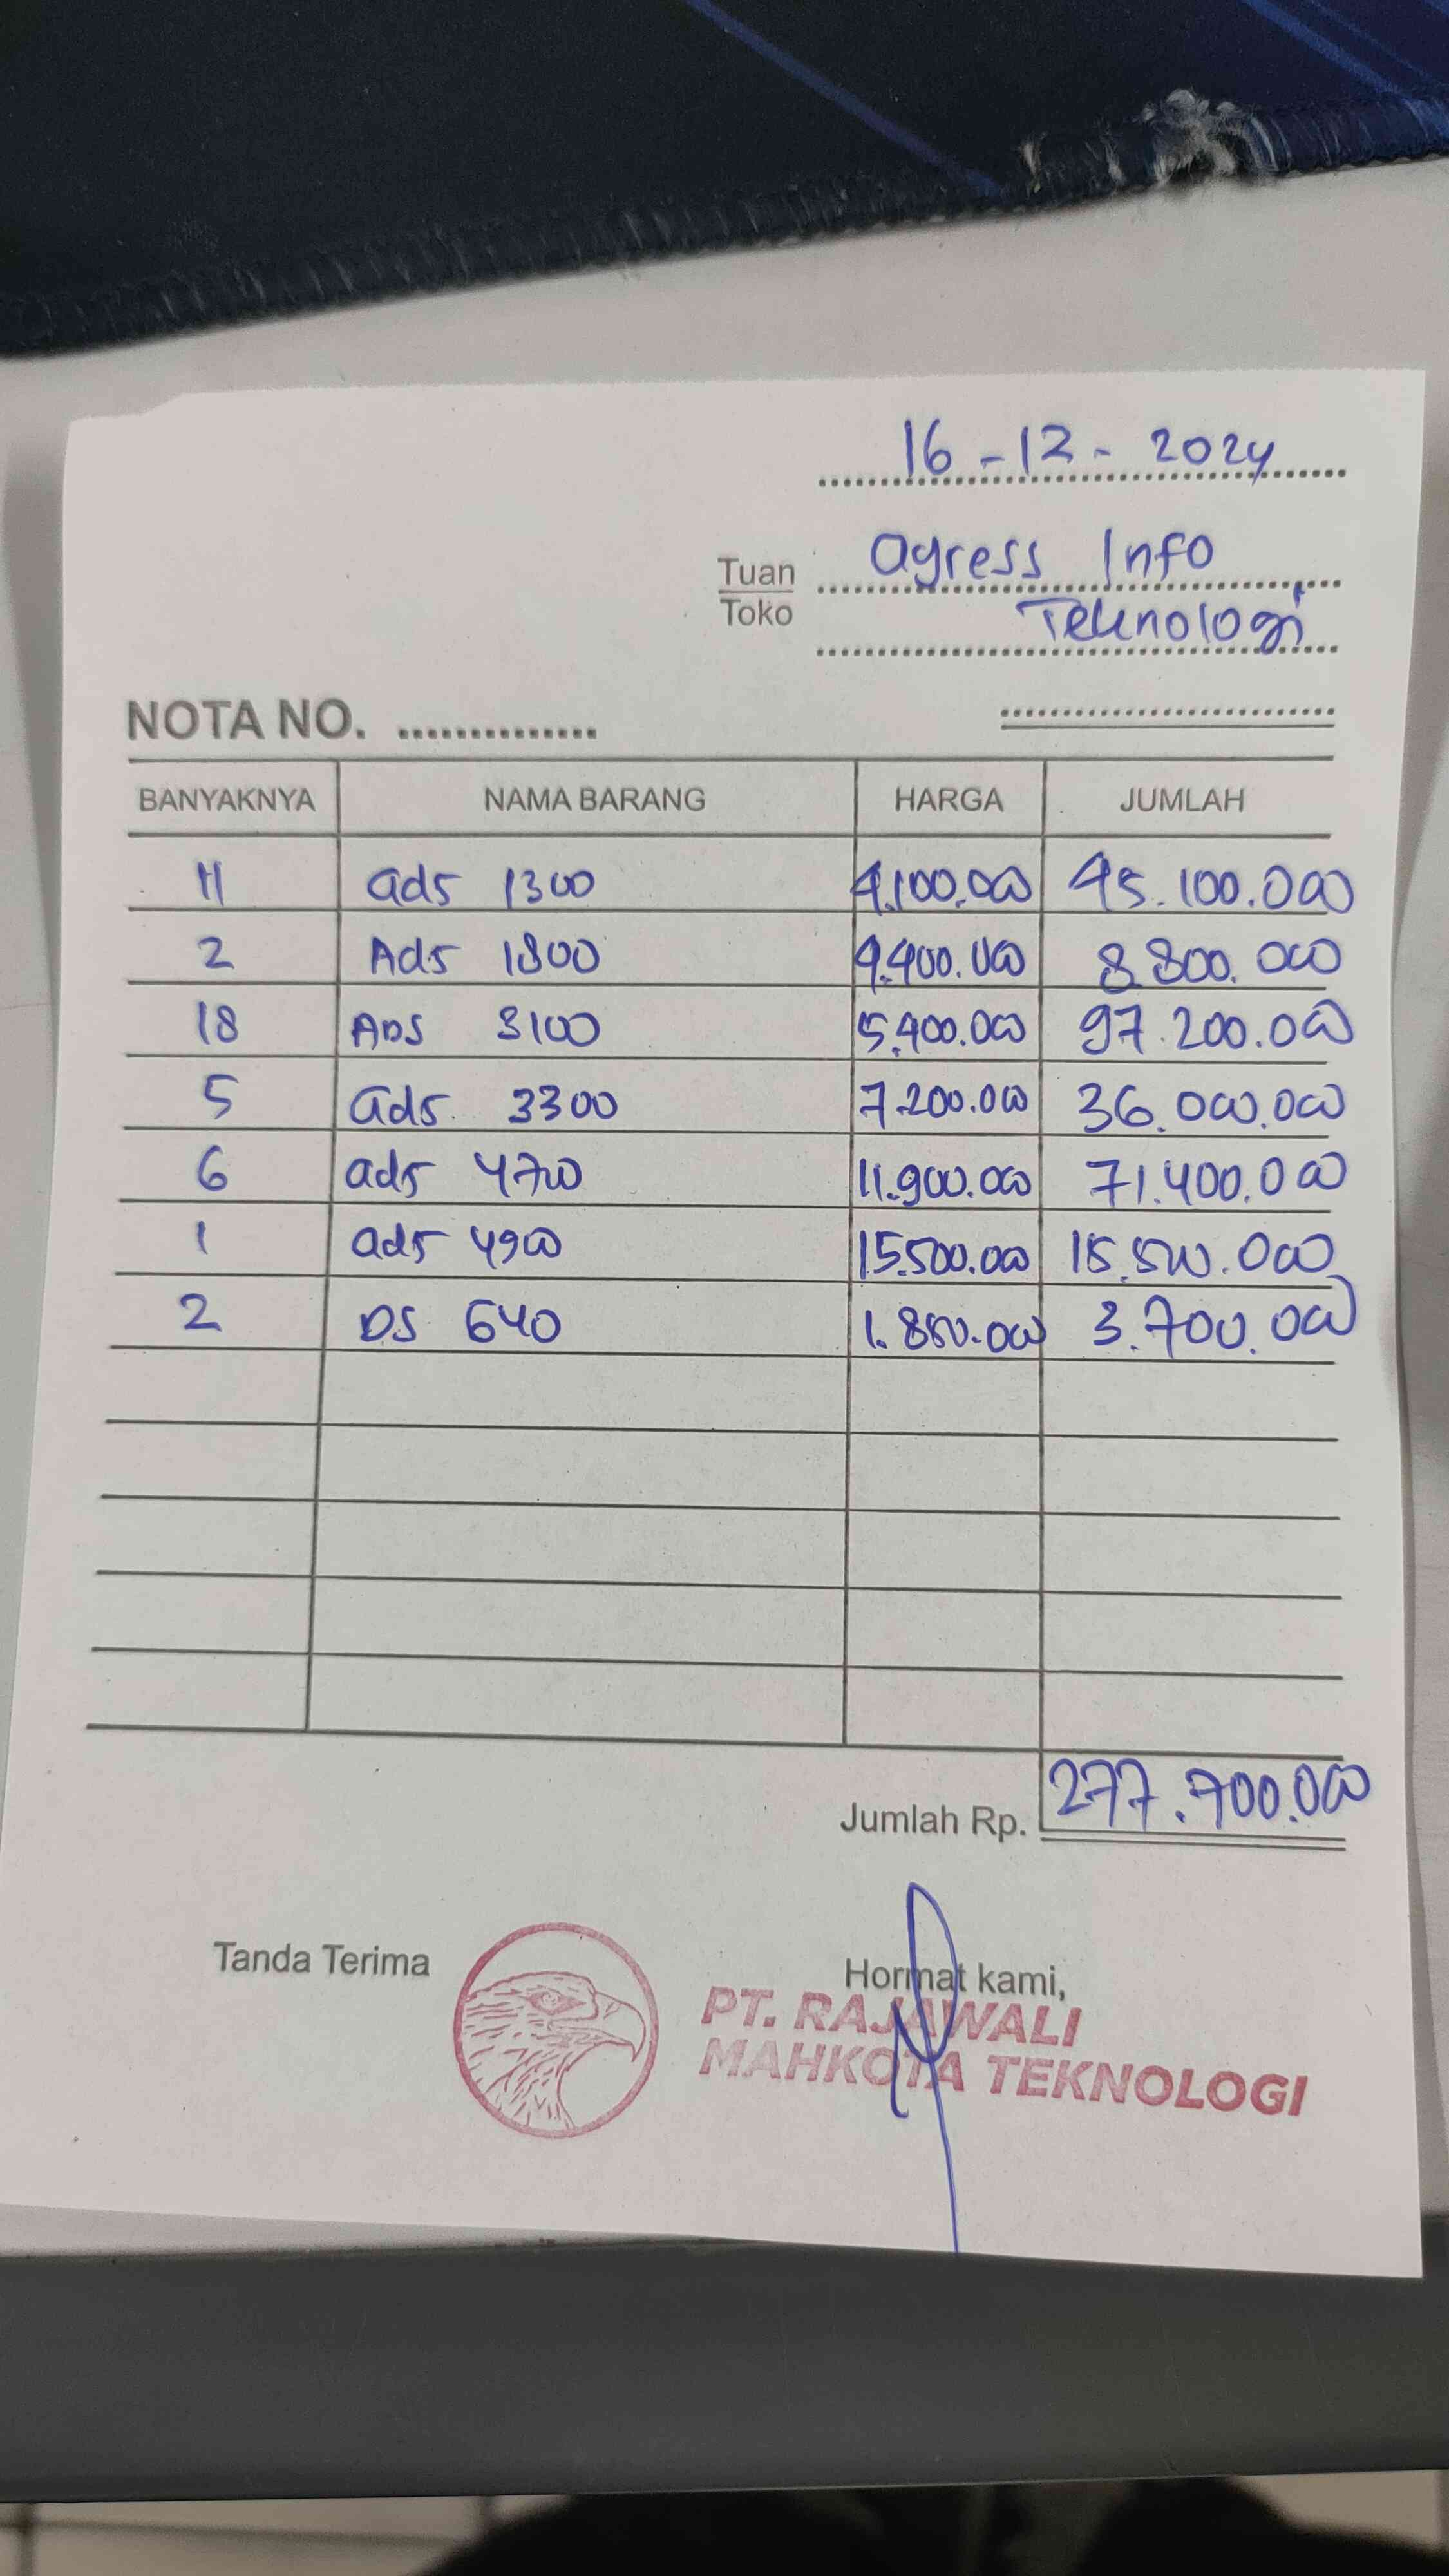 16-12-2024
Tuan agress Info
Toko Teknologi
NOTA NO. ..............
BANYAKNYA NAMA BARANG HARGA JUMLAH
11 ads 1300 4.100.000 45.100.000
2 Ads 1800 4.400.000 8.800.000
18 ADS 3100 5.400.000 97.200.000
5 ads. 3300 7.200.000 36.000.000
6 ads 4700 11.900.000 71.400.000
1 ads 4900 15.500.000 15.500.000
2 DS 640 1.850.000 3.700.000
Jumlah Rp. 277.700.000
Tanda Terima Hormat kami,
PT. RAJAWALI
MAHKOTA TEKNOLOGI